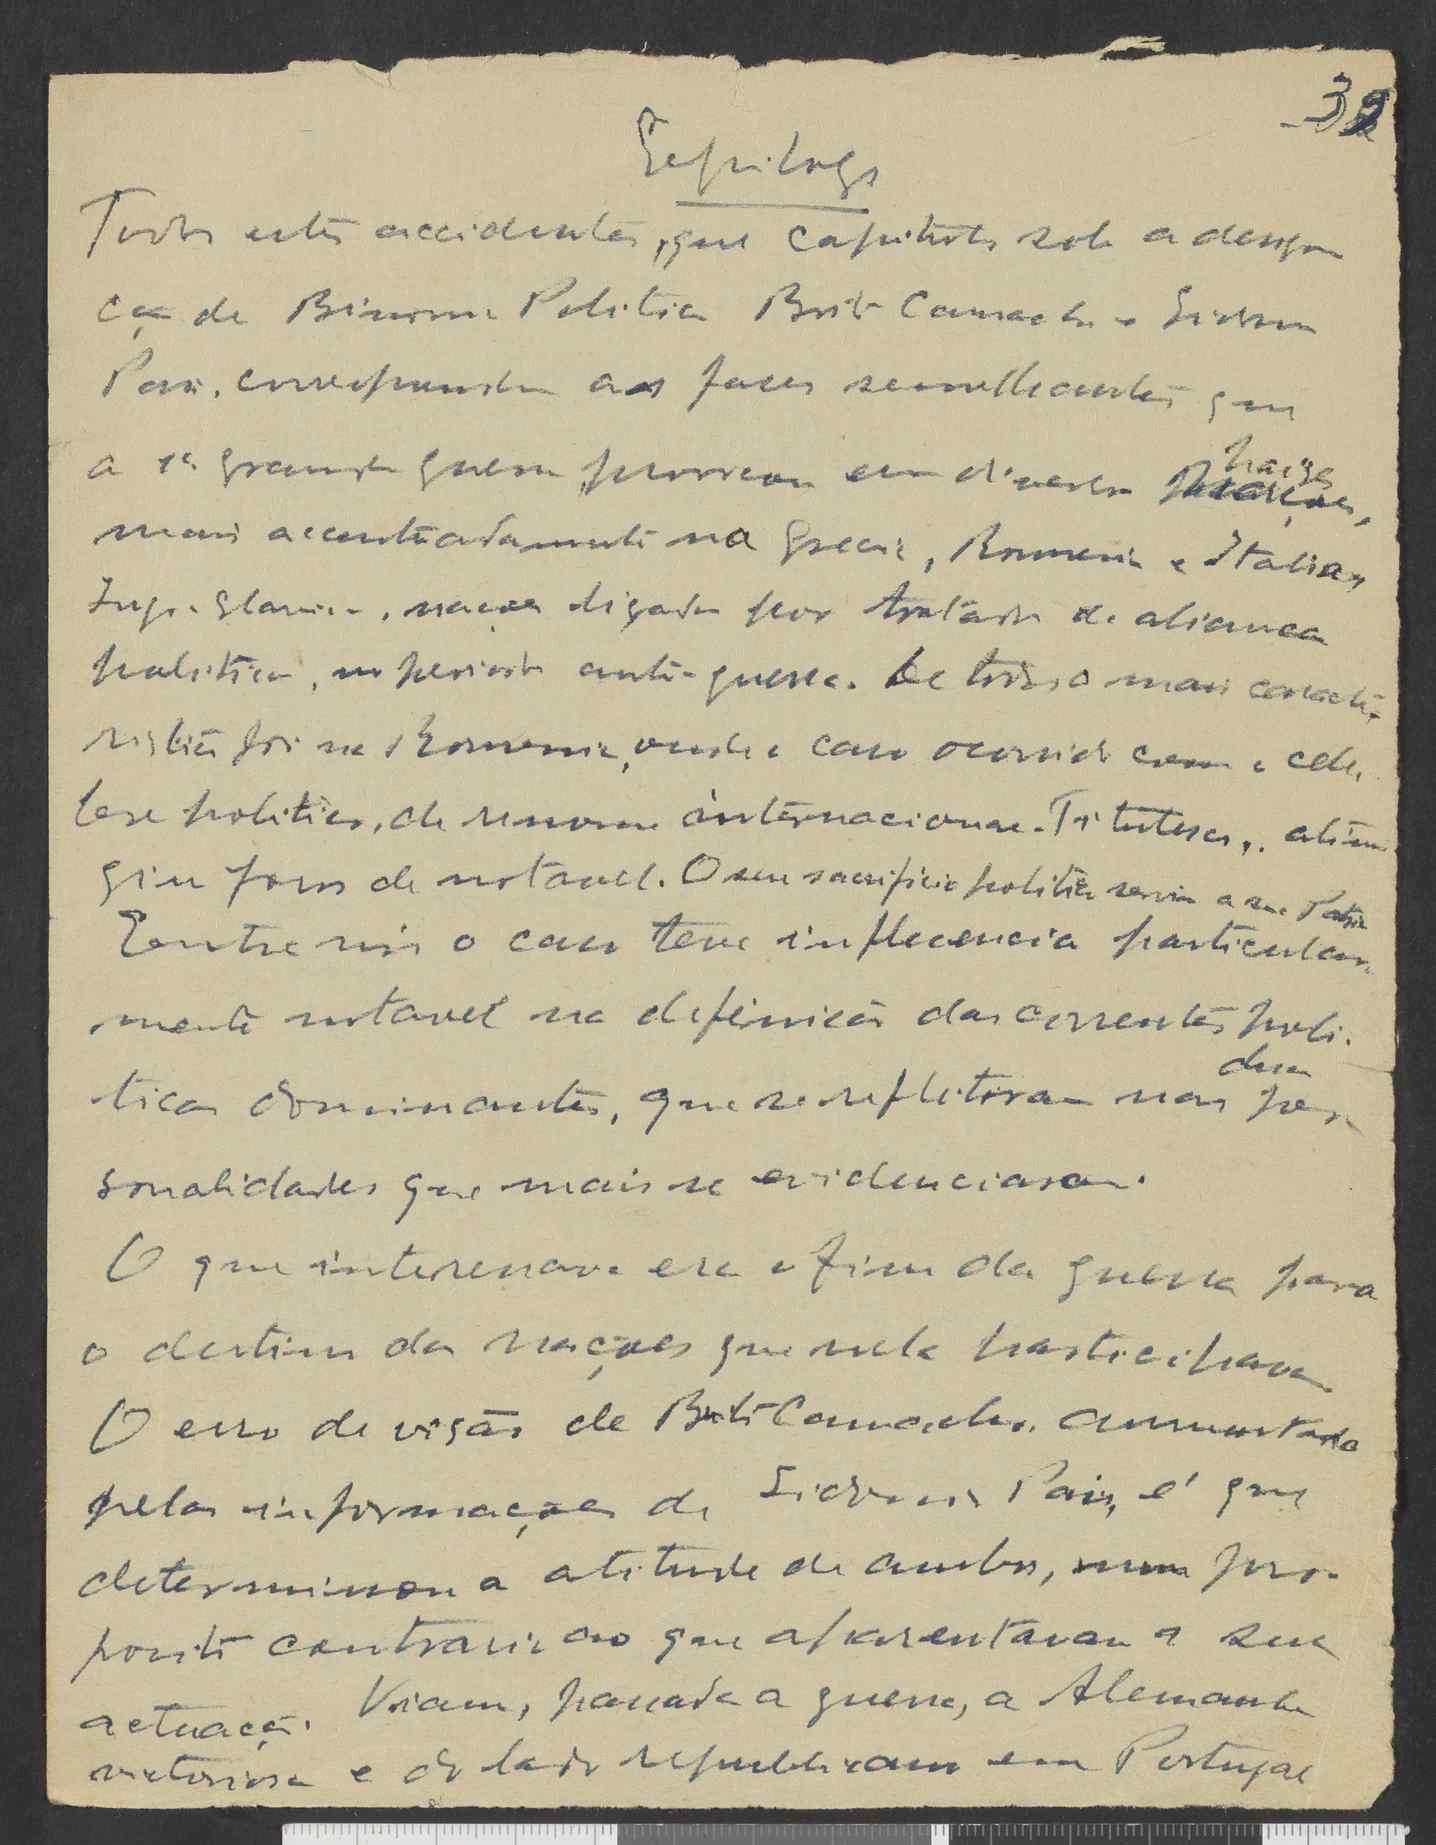 32
Epilogo
Todos estes accidentes, que capitulo sob a designa
ção de Binomio Politico Brito Camacho e Sidonio
Pais, correspondem as faces semelhantes que
a 1ª grande guerra provocou em diversos paizes,
mais accentuadamente na Grecia, Romenia e Italia,
nações ligadas por tratado de aliança
politica, no periodo ante-guerra. De todos o mais caracte-
ristico foi na Romenia, onde o caso ocorrido com o cele-
bre politico, de renome internacional Titulescu, atin
giu foros de notavel. O seu sacrificio politico serviu a sua Patria
Entre nós o caso teve influencia particular-
mente notavel na definição das correntes poli-
ticas dominantes, que se reflectiram nas duas per-
sonalidades que mais se evidenciaram.
O que interessava era o fim da guerra para
o destino das nações que nela participavam
O erro de visão de Brito Camacho, aumentado
pelas informações de Sidonio Pais, é que
determinou a atitude de ambos, num pro-
posito contrario ao que aparentavam a sua
actuação. Viam, passada a guerra, a Alemanha
victoriosa e do lado republicano em Portugal